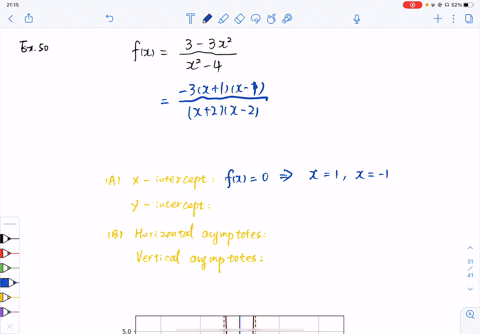 21:15
52%
Ex.50
f(x) = \frac{3 - 3x^2}{x^2 - 4}
= \frac{-3(x+1)(x-1)}{(x+2)(x-2)}
(A) x - intercept: f(x) = 0 ⇒ x = 1, x = -1
y - intercept:
(B) Horizontal asymptotes:
Vertical asymptotes:
31
/
41
5.0